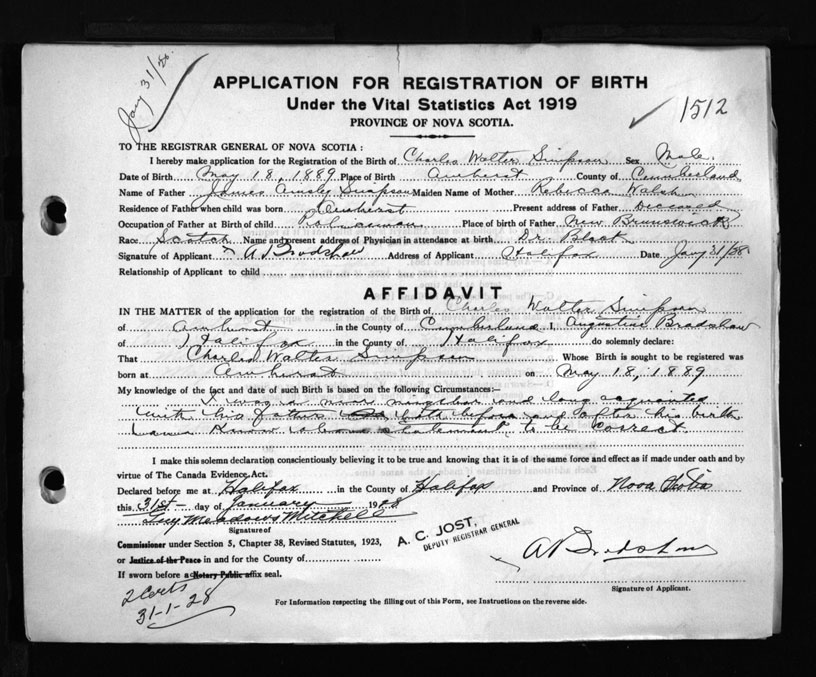 Jany 31/28.
APPLICATION FOR REGISTRATION OF BIRTH
Under the Vital Statistics Act 1919
1512
PROVINCE OF NOVA SCOTIA.
TO THE REGISTRAR GENERAL OF NOVA SCOTIA :
I hereby make application for the Registration of the Birth of Charles Walter Simpson Sex Male.
Date of Birth May 18, 1889 Place of Birth Amherst County of Cumberland
Name of Father James Ainsley Simpson Maiden Name of Mother Rebecca Walsh
Residence of Father when child was born Amherst Present address of Father Deceased
Occupation of Father at Birth of child Policeman Place of birth of Father New Brunswick
Race Scotch Name and present address of Physician in attendance at birth Dr. Black
Signature of Applicant A Bradshaw Address of Applicant Halifax Date Jany 31/28
Relationship of Applicant to child
AFFIDAVIT
IN THE MATTER of the application for the registration of the Birth of Charles Walter Simpson
of Amherst in the County of Cumberland I, Augustine Bradshaw
of Halifax in the County of Halifax do solemnly declare:
That Charles Walter Simpson Whose Birth is sought to be registered was
born at Amherst on May 18, 1889
My knowledge of the fact and date of such Birth is based on the following Circumstances:-
I was a near neighbor and long acquainted
with his father both before and after his birth
and know above statement to be correct
I make this solemn declaration conscientiously believing it to be true and knowing that it is of the same force and effect as if made under oath and by
virtue of The Canada Evidence Act.
Declared before me at Halifax in the County of Halifax and Province of Nova Scotia
this 31st day of January 1928
Guy Meadows Mitchell
Signature of
A. C. JOST,
DEPUTY REGISTRAR GENERAL
Commissioner under Section 5, Chapter 38, Revised Statutes, 1923,
or Justice of the Peace in and for the County of
A Bradshaw
If sworn before a Notary Public affix seal.
Signature of Applicant.
2 Certs
31-1-28
For Information respecting the filling out of this Form, see Instructions on the reverse side.